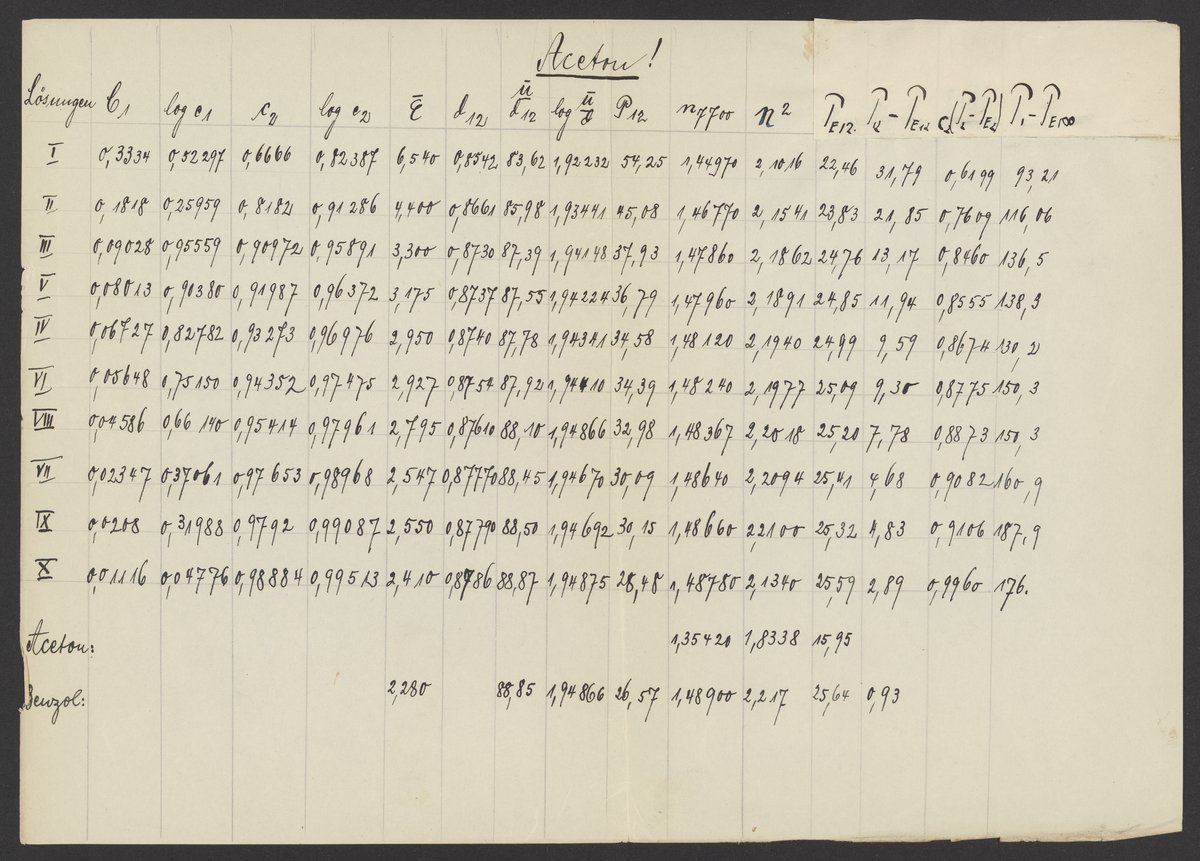 Aceton!
Lösungen C1 log c1 c2 log c2 ε̄ d12 ū/d12 log ū/d P12 n7700 n2 PE12. P12-PE12 c2(P2-PE2) P1-PE1∞
I 0,3334 0,52297 0,6666 0,82387 6,540 0,8542 83,62 1,92232 54,25 1,44970 2,1016 22,46 31,79 0,6199 93,21
II 0,1818 0,25959 0,8182 0,91286 4,400 0,8661 85,98 1,93441 45,08 1,46770 2,1541 23,83 21,85 0,7609 116,06
III 0,09028 0,95559 0,90972 0,95891 3,300 0,8730 87,39 1,94148 37,93 1,47860 2,1862 24,76 13,17 0,8460 136,5
V 0,08013 0,90380 0,91987 0,96372 3,175 0,8737 87,55 1,94224 36,79 1,47960 2,1891 24,85 11,94 0,8555 138,3
IV 0,06727 0,82782 0,93273 0,96976 2,950 0,8740 87,78 1,94341 34,58 1,48120 2,1940 24,99 9,59 0,8674 130,2
VI 0,05648 0,75150 0,94352 0,97475 2,927 0,8754 87,92 1,94410 34,39 1,48240 2,1977 25,09 9,30 0,8775 150,3
VIII 0,04586 0,66140 0,95414 0,97961 2,795 0,87610 88,10 1,94866 32,98 1,48367 2,2018 25,20 7,78 0,8873 150,3
VII 0,02347 0,37061 0,97653 0,98968 2,547 0,87770 88,45 1,94670 30,09 1,48640 2,2094 25,41 4,68 0,9082 160,9
IX 0,0208 0,31988 0,9792 0,99087 2,550 0,87790 88,50 1,94692 30,15 1,48660 2,2100 25,32 4,83 0,9106 187,9
X 0,01116 0,04776 0,98884 0,99513 2,410 0,8786 88,87 1,94875 28,48 1,48780 2,1340 25,59 2,89 0,9960 176.
Aceton: 1,35420 1,8338 15,95
Benzol: 2,280 88,85 1,94866 26,57 1,48900 2,217 25,64 0,93